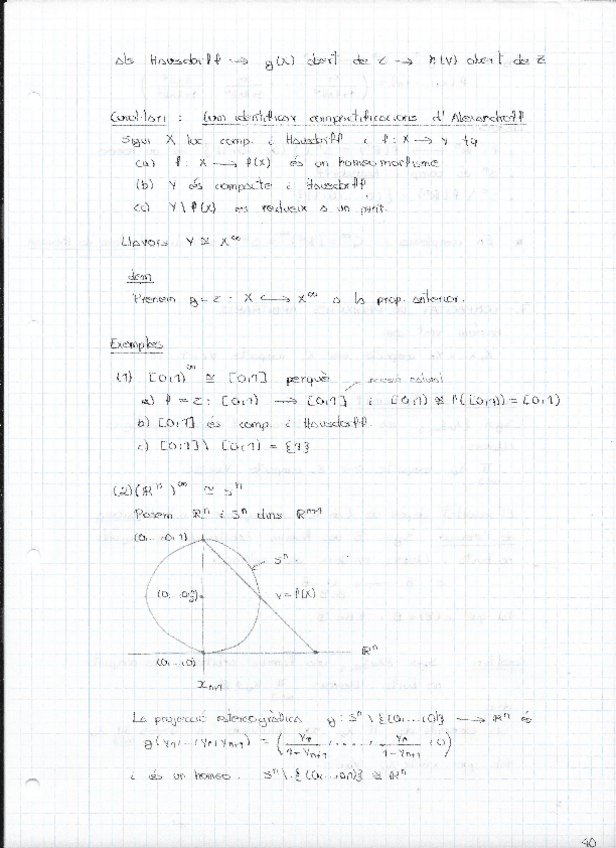 als Hausdorff → g(X) obert de Z → h(V) obert de Z
Corol·lari : (com identificar compactificacions d'Alexandroff)
Sigui X loc. comp. i Hausdorff i f: X → Y tq
(a) f: X → f(X) és un homeomorfisme
(b) Y és compacte i Hausdorff
(c) Y \ f(X) es redueix a un punt.
Llavors Y ≅ X^∞
dem
Prenem g = i : X ↪ X^∞ a la prop. anterior.
Exemples
(1) [0,1)^∞ ≅ [0,1] perquè
a) f = i : [0,1) → [0,1] i [0,1) ≅ f([0,1)) = [0,1)
b) [0,1] és comp. i Hausdorff
c) [0,1] \ [0,1) = {1}
(2) (ℝⁿ)^∞ ≅ Sⁿ
Posem ℝⁿ i Sⁿ dins ℝⁿ⁺¹
(0,...,0,1)
Sⁿ
y = f(x)
ℝⁿ
(0,...,0)
xₙ₊₁
La projecció estereogràfica g : Sⁿ \ {(0,...,0,1)} → ℝⁿ és
g(y₁,...,yₙ,yₙ₊₁) = (y₁/(1-yₙ₊₁), ..., yₙ/(1-yₙ₊₁), 0)
i és un homeo. Sⁿ \ {(0,...,0,1)} ≅ ℝⁿ
40